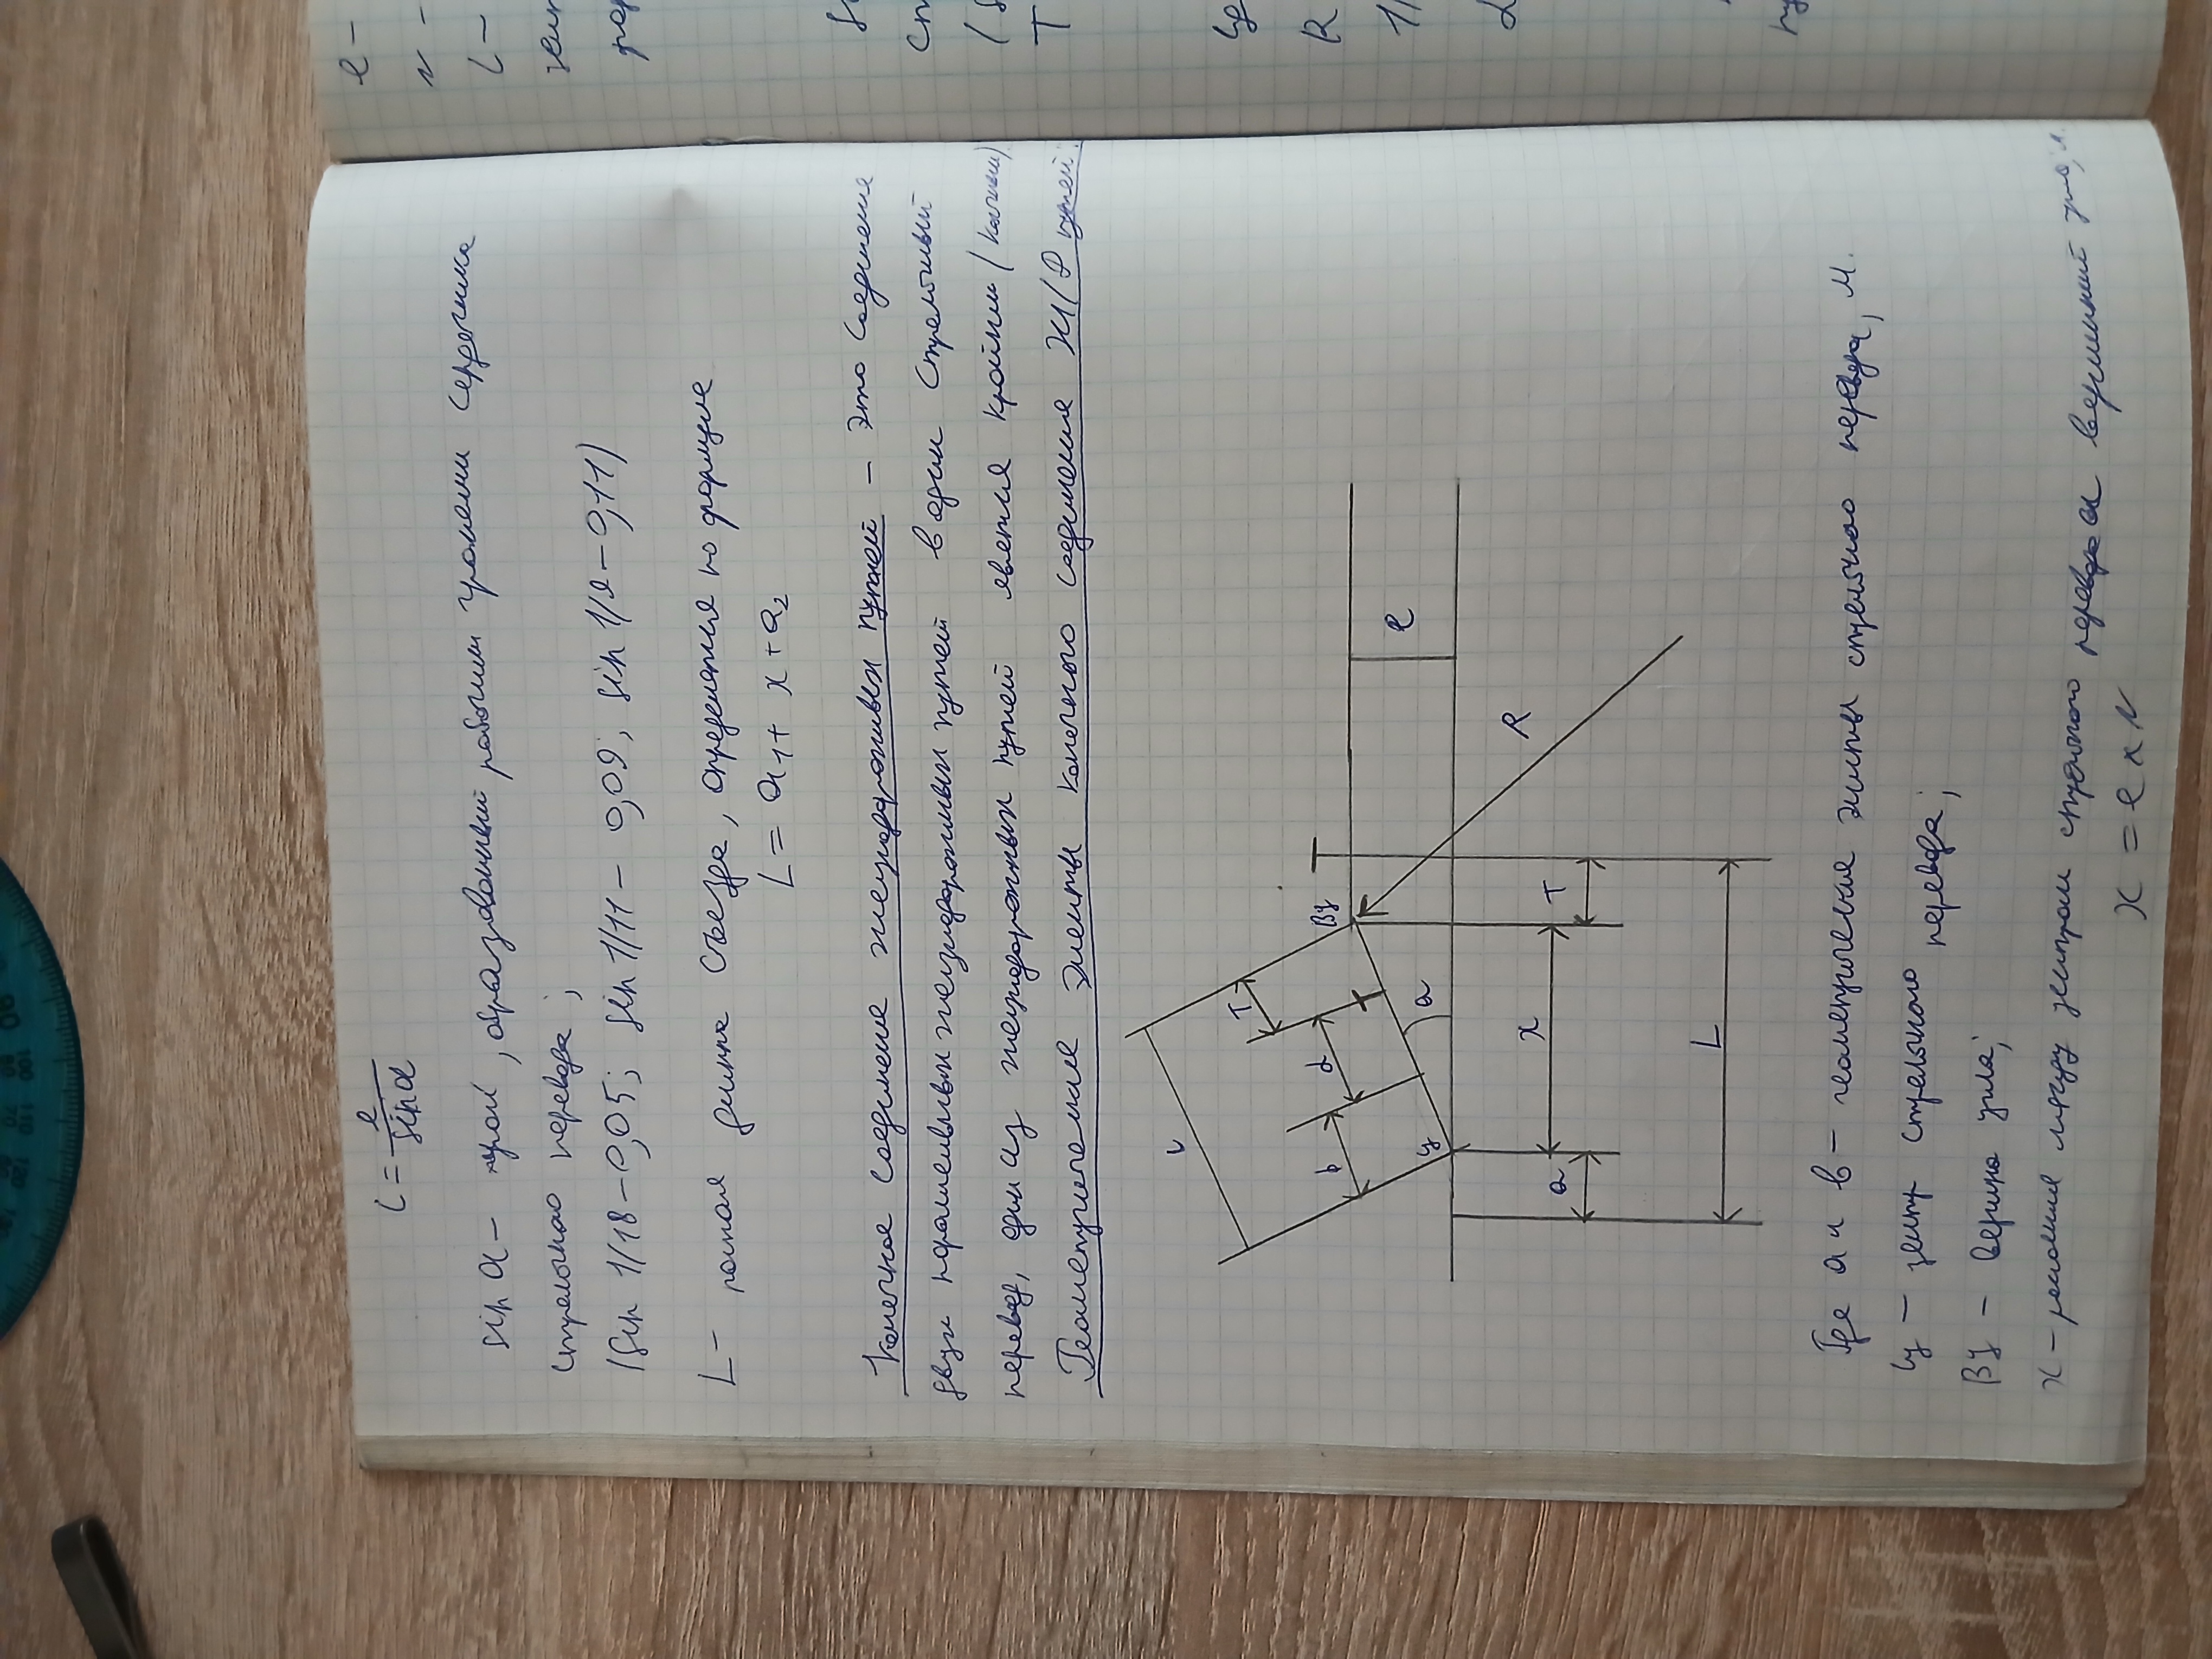 l = e / sin α
sin α – угол, образованный рабочими гранями сердечника
стрелочного перевода;
(sin 1/18 – 0,05; sin 1/11 – 0,09; sin 1/9 – 0,11)
L – полная длинна съезда, определяется по формуле
L = a1 + x + a2
Конечное соединение железнодорожных путей – это соединение
двух параллельных железнодорожных путей в один стрелочный
перевод, один из железнодорожных путей является крайним (
Геометрические элементы конечного соединения Ж/Д путей:
T
b
d
T
ВУ
e
a
R
a
x
T
L
Где а и в – геометрические элементы стрелочного перевода, м.
Ц – центр стрелочного перевода;
ВУ – вершина угла;
x – расстояние между центром стрелочного перевода и вершиной угла, м.
x = e × N
e –
N –
T
R